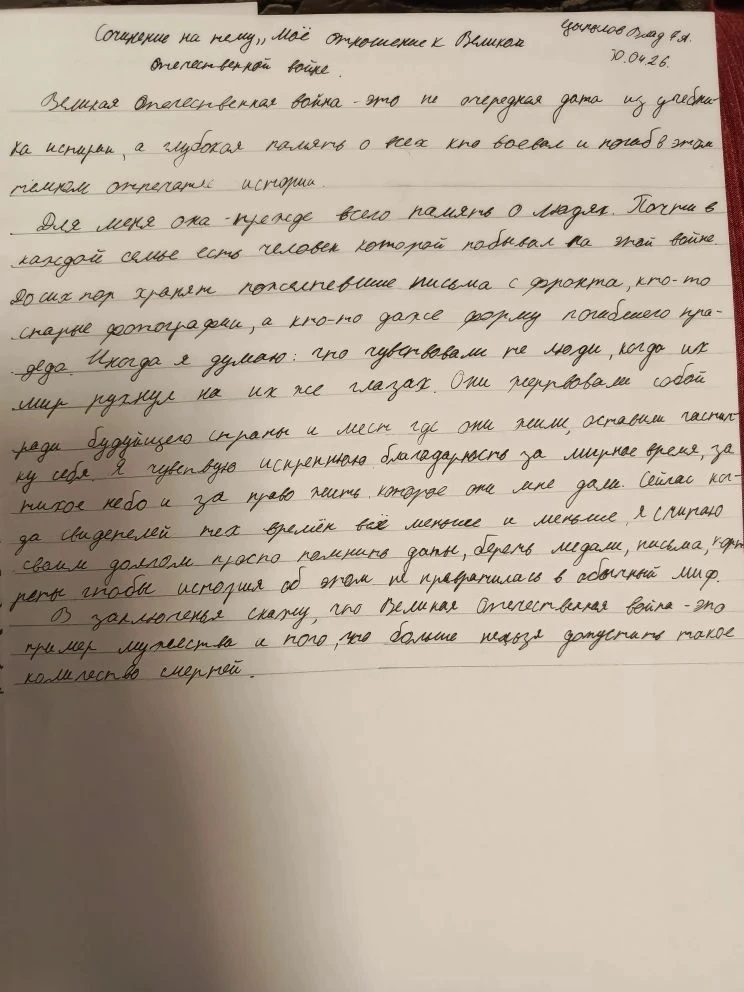 Сочинение на тему „Моё отношение к Великой
Отечественной войне.
Цыпылов Влад 9 А.
10.04.26.
Великая Отечественная война - это не очередная дата из учебни-
ка истории, а глубокая память о всех кто воевал и погиб в этом
тёмном отпечатке истории.
Для меня она - прежде всего память о людях. Почти в
каждой семье есть человек которой побывал на этой войне.
До сих пор хранят пожелтевшие письма с фронта, кто-то
старые фотографии, а кто-то даже форму погибшего пра-
деда. Иногда я думаю: что чувствовали те люди, когда их
мир рухнул на их же глазах. Они жертвовали собой
ради будуйщего страны и мест где они жили, оставили частич-
ку себя. Я чувствую искреннюю благодарность за мирное время, за
тихое небо и за право жить которое они мне дали. Сейчас ког-
да свидетелей тех времён всё меньше и меньше, я считаю
своим долгом просто помнить даты, беречь медали, письма, порт
реты чтобы история об этом не превратилась в обычный миф.
В заключенья скажу, что Великая Отечественная война - это
пример мужества и того, что больше нельзя допустить такое
количество смертей.